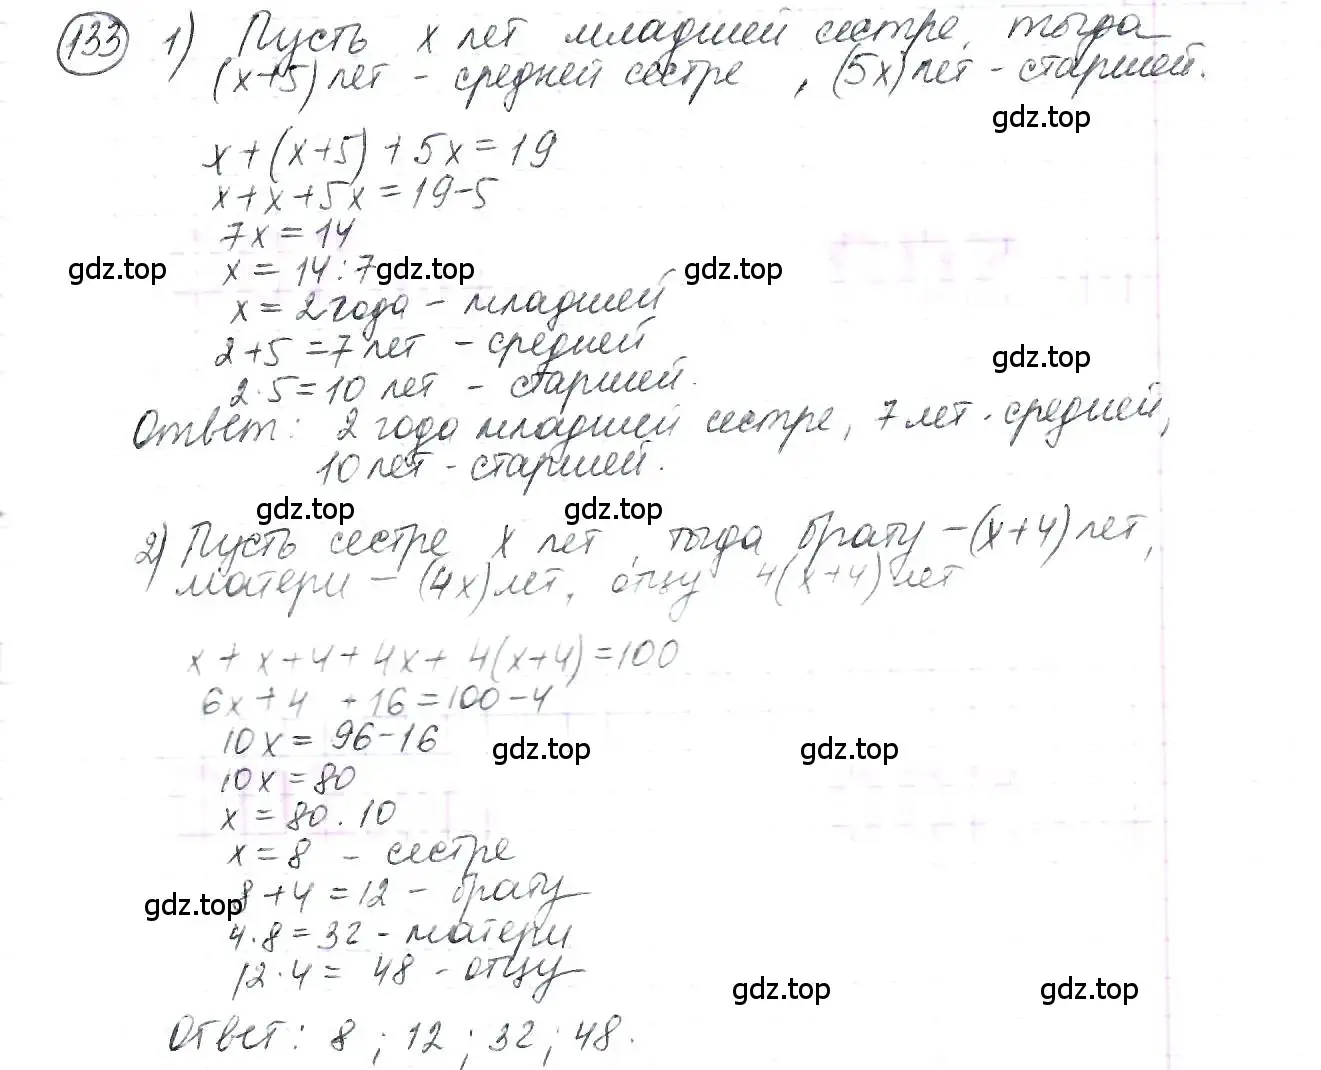 133 1) Пусть x лет младшей сестре, тогда
(x+5) лет - средней сестре, (5x) лет - старшей.
gdz.top
x+(x+5)+5x=19
x+x+5x=19-5
7x=14
gdz.top x=14:7 gdz.top gdz.top
x=2 года - младшей
2+5=7 лет - средней
gdz.top
2·5=10 лет - старшей.
Ответ: 2 года младшей сестре, 7 лет - средней,
10 лет - старшей.
gdz.top gdz.top
2) Пусть сестре x лет, тогда брату -(x+4) лет,
матери - (4x) лет, отцу 4(x+4) лет
x+x+4+4x+4(x+4)=100
6x+4 +16=100-4
10x=96-16
gdz.top gdz.top
10x=80
x=80.10
x=8 - сестре
8+4=12 - брату
gdz.top
4·8=32 - матери
12·4= 48 - отцу
gdz.top gdz.top
Ответ: 8; 12; 32; 48.